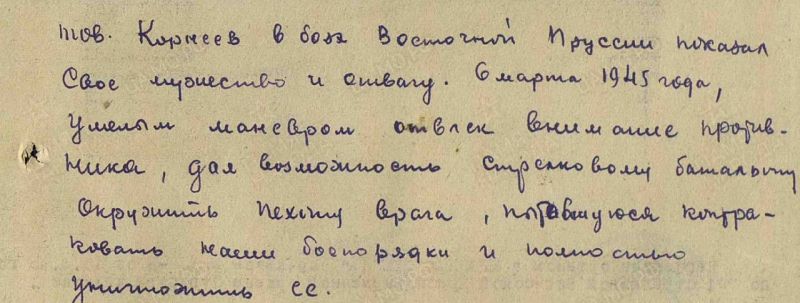 тов. Корнеев в боях Восточной Пруссии показал
Свое мужество и отвагу. 6 марта 1945 года,
Умелым маневром отвлек внимание против-
ника, дал возможность стрелковому батальону
окружить пехоту врага, пытавшуюся контра-
ковать наши боепорядки и полностью
уничтожить ее.